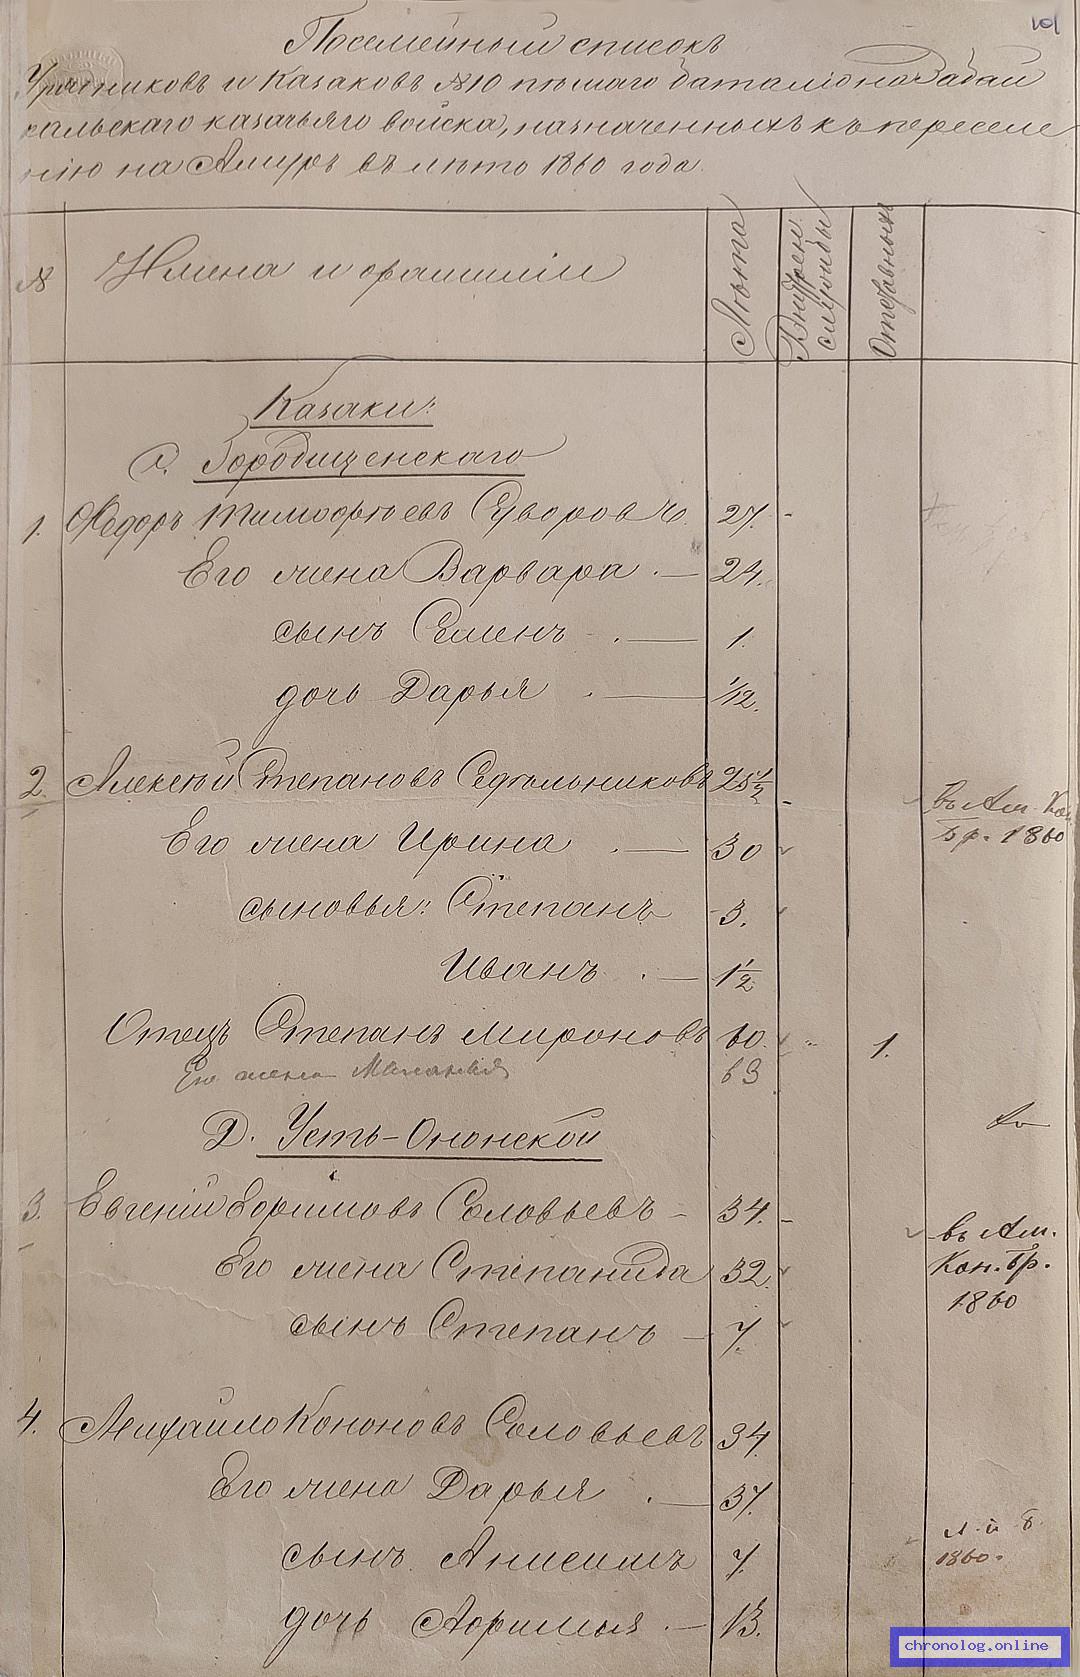 101
Посемейный списокъ
Урядниковъ и Казаковъ №10 пѣшаго баталіона Забай
кальскаго казачьяго войска, назначенныхъ къ переселе
нію на Амуръ въ лѣто 1860 года.
№ Имена и фамиліи Лѣта Внутрен. службы Отставныхъ
Казаки:
С. Городищенскаго
1. Федоръ Тимофѣевъ Суворовъ 27.
Его жена Варвара 24.
сынъ Семенъ 1.
дочь Дарья 1/12.
2. Алексѣй Степановъ Седельниковъ 25 1/2
въ Ам. Кон.
Бр. 1860
Его жена Ирина 30
сыновья: Степанъ 3.
Иванъ 1 1/2
Отецъ Степанъ Мироновъ 60. 1.
Его жена Меланья 63
Д. Усть-Ононской
3. Евгеній Ефимовъ Соловьевъ 34.
въ Ам.
Кон. бр.
1860
Его жена Степанида 32
сынъ Степанъ 7.
4. Михайло Кононовъ Соловьевъ 34.
Его жена Дарья 37.
сынъ Анисимъ 7.
1860.
дочь Афимья 13.
chronolog.online